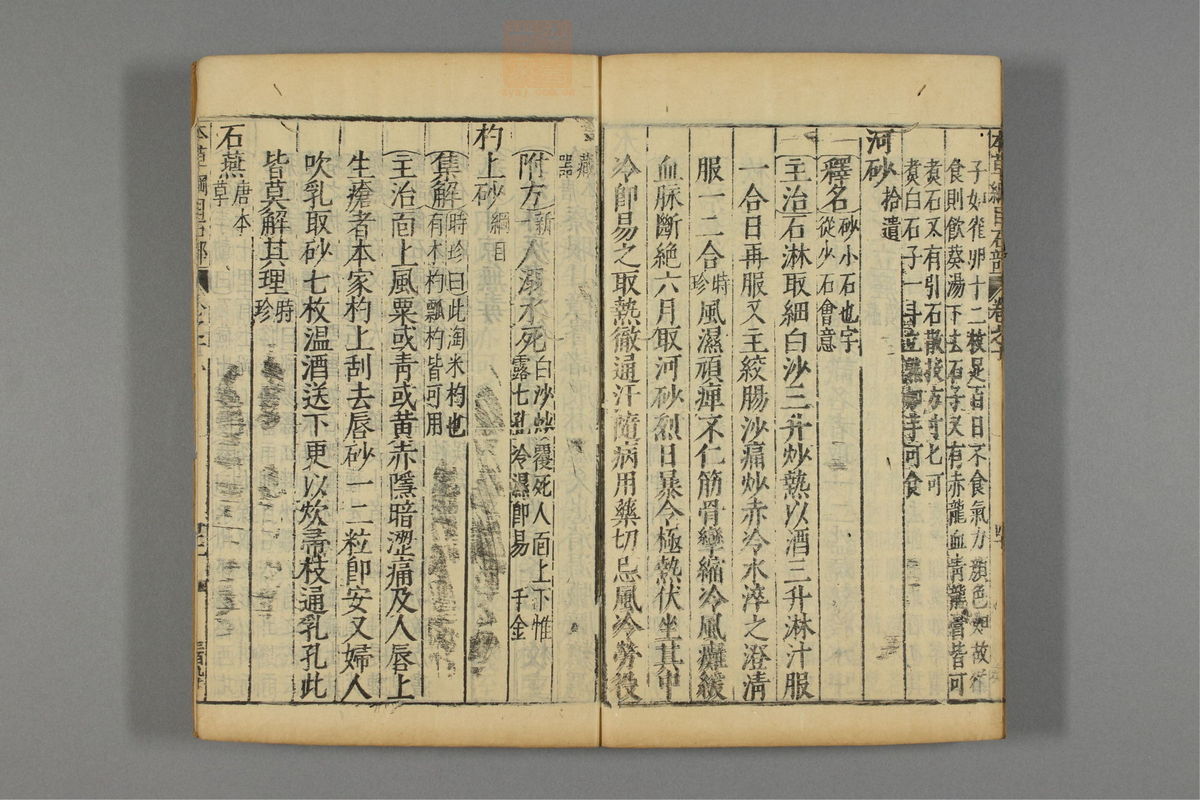 本草綱目石部 卷之十
子如雀卵十二枚足百日不食氣力顏色如故催
食則飲葵湯下去石子又有赤龍血青龍膏皆可
煮石又有引石散投方寸匕可
煮白石子一斗立熟如芋可食
河砂拾遺
釋名砂小石也字
從少石會意
主治石淋取細白沙三升炒熱以酒三升淋汁服
一合日再服又主絞腸沙痛炒赤冷水淬之澄清
服一二合時珍風濕頑痺不仁筋骨攣縮冷風癱緩
血脉斷絕六月取河砂烈日暴令極熱伏坐其中
冷即易之取熱徹通汗隨病用藥切忌風冷勞役
藏器
附方新一人溺水死白沙炒覆死人面上下惟
露七孔冷濕即易千金
杓上砂綱目
集解時珍曰此淘米杓也
有木杓瓢杓皆可用
主治面上風粟或青或黄赤隱暗澀痛及人唇上
生瘡者本家杓上刮去唇砂一二粒即安又婦人
吹乳取砂七枚温酒送下更以炊帚枝通乳孔此
皆莫解其理時珍
石燕唐本草